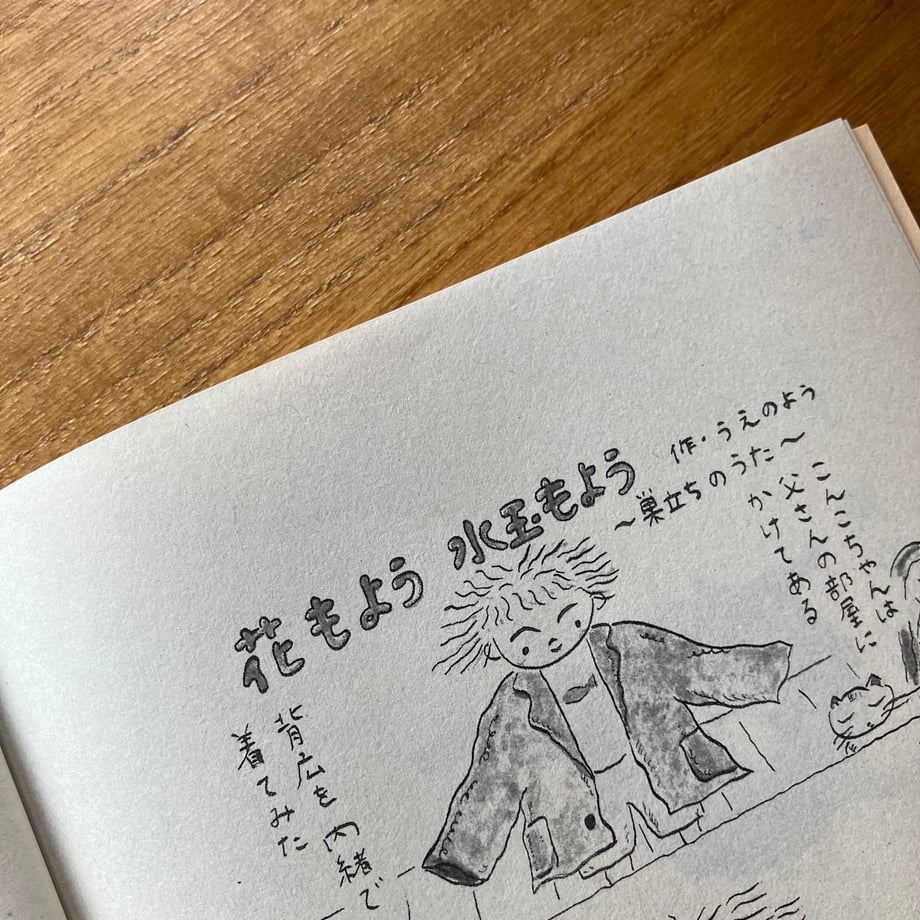 花もよう 水玉もよう
作・うえのよう
〜巣立ちのうた〜
こんこちゃんは
父さんの部屋に
かけてある
背広を 内緒で
着てみた